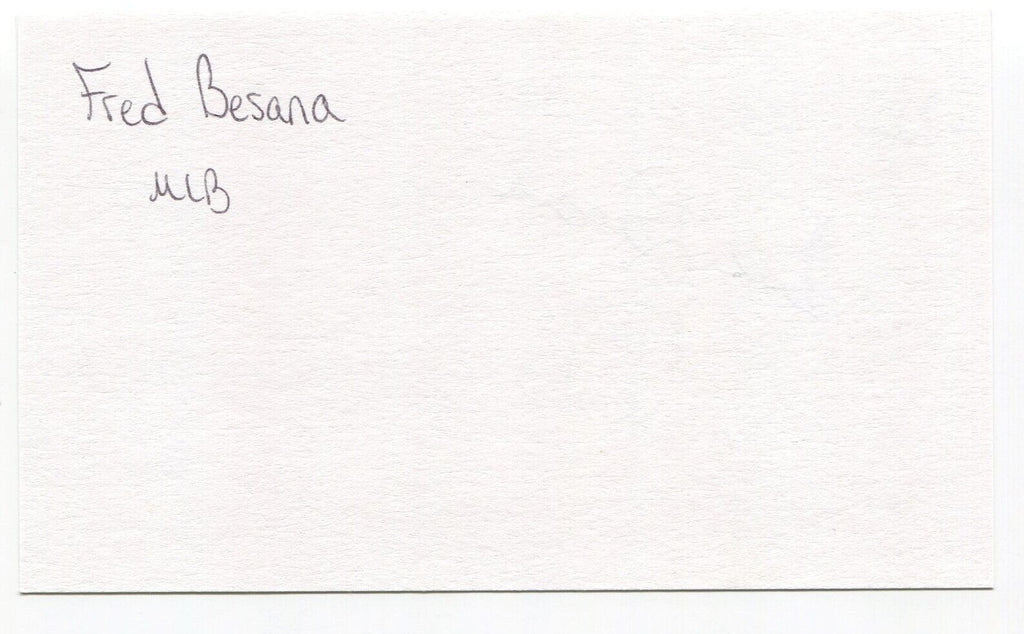 Fred Besana
MLB